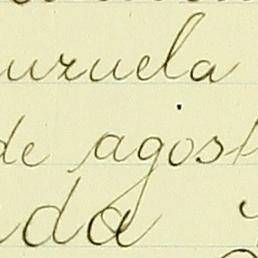 uzuela
de agost
da